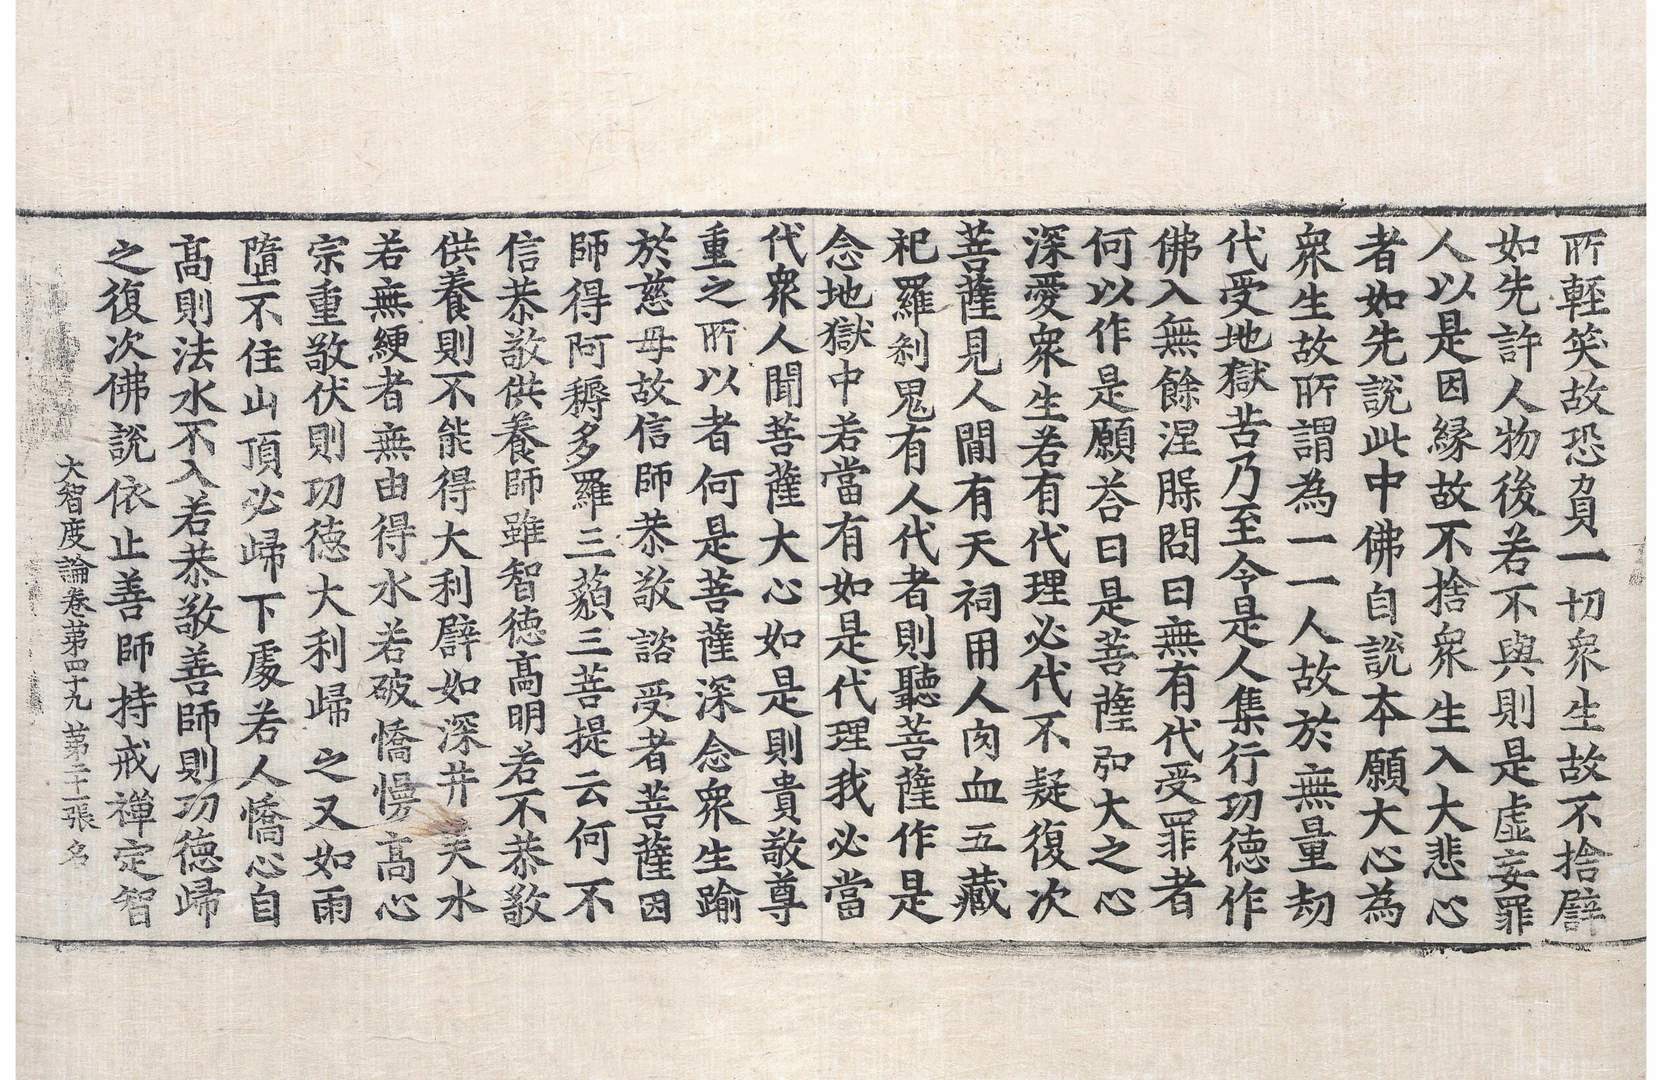 所輕笑故恐負一切衆生故不捨譬
如先許人物後若不與則是虛妄罪
人以是因緣故不捨衆生入大悲心
者如先說此中佛自說本願大心為
衆生故所謂為一一人故於無量劫
代受地獄苦乃至令是人集行功德作
佛入無餘涅槃問曰無有代受罪者
何以作是願荅曰是菩薩弘大之心
深愛衆生若有代理必代不疑復次
菩薩見人間有天祠用人肉血五藏
祀羅刹鬼有人代者則聽菩薩作是
念地獄中若當有如是代理我必當
代衆人聞菩薩大心如是則貴敬尊
重之所以者何是菩薩深念衆生踰
於慈母故信師恭敬諮受者菩薩因
師得阿耨多羅三藐三菩提云何不
信恭敬供養師雖智德高明若不恭敬
供養則不能得大利譬如深井美水
若無綆者無由得水若破憍慢高心
宗重敬伏則功德大利歸之又如雨
墮不住山頂必歸下處若人憍心自
高則法水不入若恭敬善師則功德歸
之復次佛說依止善師持戒禪定智
大智度論卷第四十九 第二十一張 名